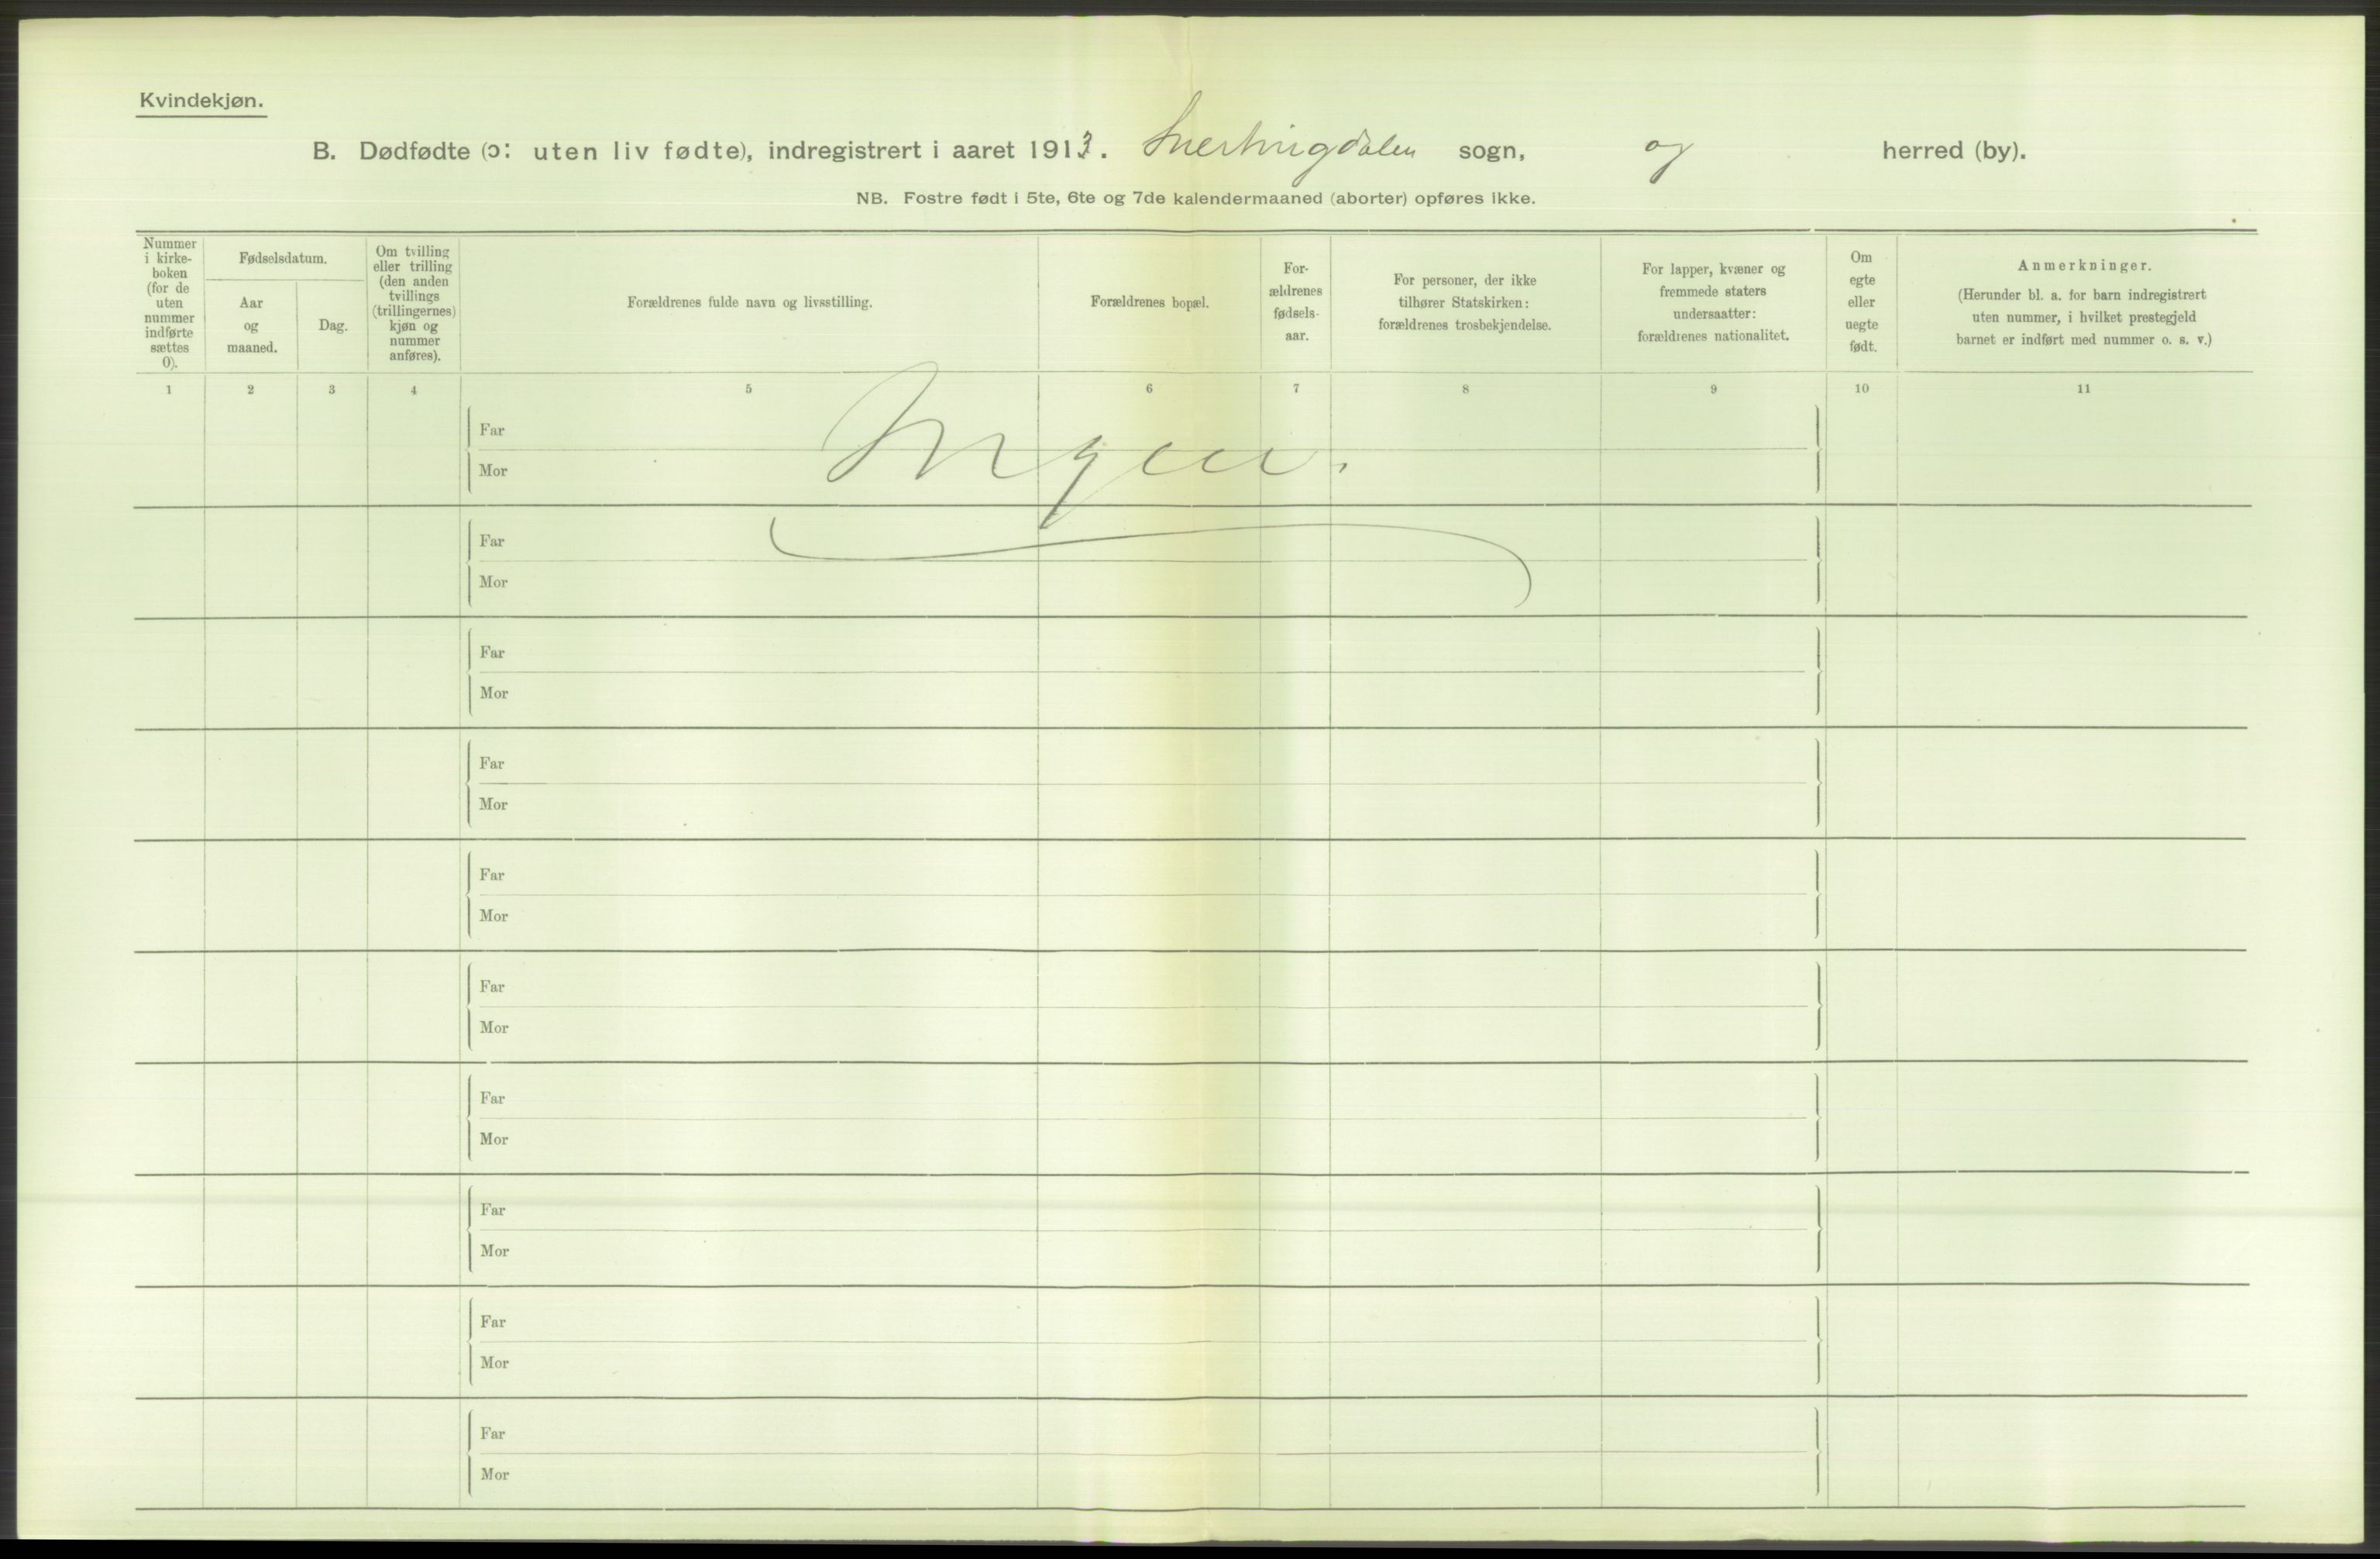 Kvindekjøn.
B. Dødfødte (ɔ: uten liv fødte), indregistrert i aaret 1913. Snertingdalen sogn, og herred (by).
NB. Fostre født i 5te, 6te og 7de kalendermaaned (aborter) opføres ikke.
Nummer
i kirke-
boken
(for de
uten
nummer
indførte
sættes
0).
Fødselsdatum.
Aar
og
maaned.
Dag.
Om tvilling
eller trilling
(den anden
tvillings
(trillingernes)
kjøn og
nummer
anføres).
Forældrenes fulde navn og livsstilling.
Forældrenes bopæl.
For-
ældrenes
fødsels-
aar.
For personer, der ikke
tilhører Statskirken:
forældrenes trosbekjendelse.
For lapper, kvæner og
fremmede staters
undersaatter:
forældrenes nationalitet.
Om
egte
eller
uegte
født.
Anmerkninger.
(Herunder bl. a. for barn indregistrert
uten nummer, i hvilket prestegjeld
barnet er indført med nummer o. s. v.)
1 2 3 4 5 6 7 8 9 10 11
Far
Ingen.
Mor
Far
Mor
Far
Mor
Far
Mor
Far
Mor
Far
Mor
Far
Mor
Far
Mor
Far
Mor
Far
Mor